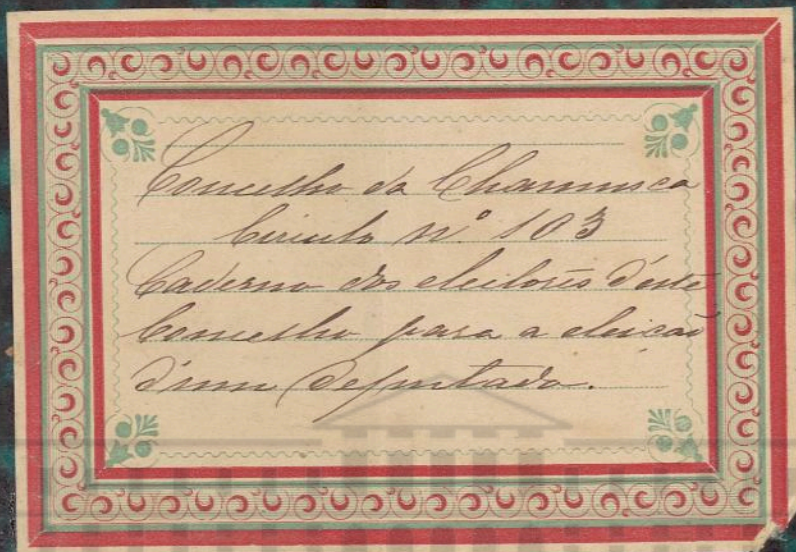 Concelho da Chamusca
Circulo nº 103
Caderno dos eleitores d'este
Concelho para a eleição
d'um deputado.